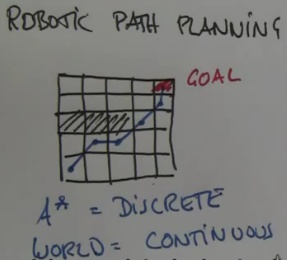 ROBOTIC PATH PLANNING
GOAL
A* = DISCRETE
WORLD = CONTINUOUS